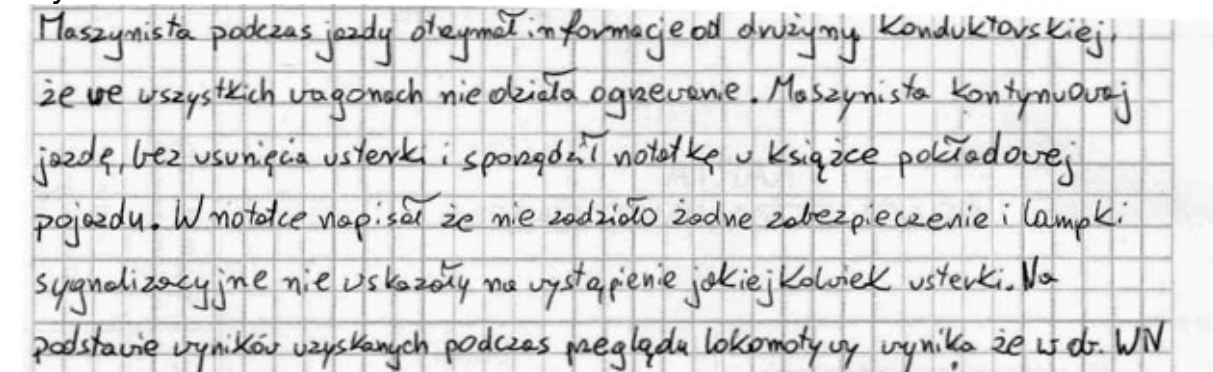 Maszynista podczas jazdy otrzymał informacje od drużyny konduktorskiej,
że we wszystkich wagonach nie działa ogrzewanie. Maszynista kontynuował
jazdę, bez usunięcia usterki i sporządził notatkę w książce pokładowej
pojazdu. W notatce napisał że nie zadziało żadne zabezpieczenie i lampki
sygnalizacyjne nie wskazały na wystąpienie jakiejkolwiek usterki. Na
podstawie wyników uzyskanych podczas przeglądu lokomotywy wynika że w ob. WN